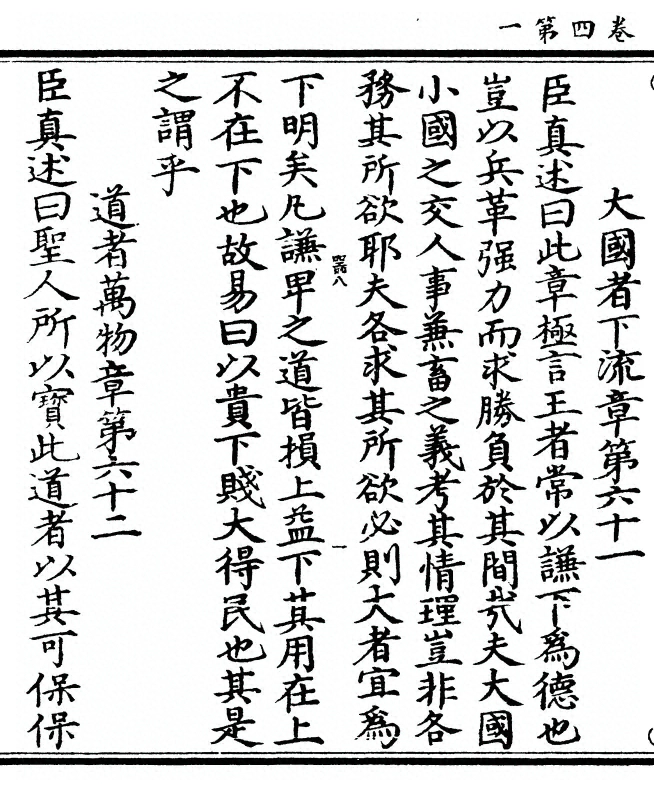 卷四第一
大國者下流章第六十一
臣真述曰此章極言王者常以謙下爲德也
豈以兵革强力而求勝負於其間㢤夫大國
小國之交人事兼畜之義考其情理豈非各
務其所欲耶夫各求其所欲必則大者宜爲
下明矣凡謙卑之道皆損上益下其用在上
不在下也故易曰以貴下賤大得民也其是
之謂乎
道者萬物章第六十二
臣真述曰聖人所以寶此道者以其可保保